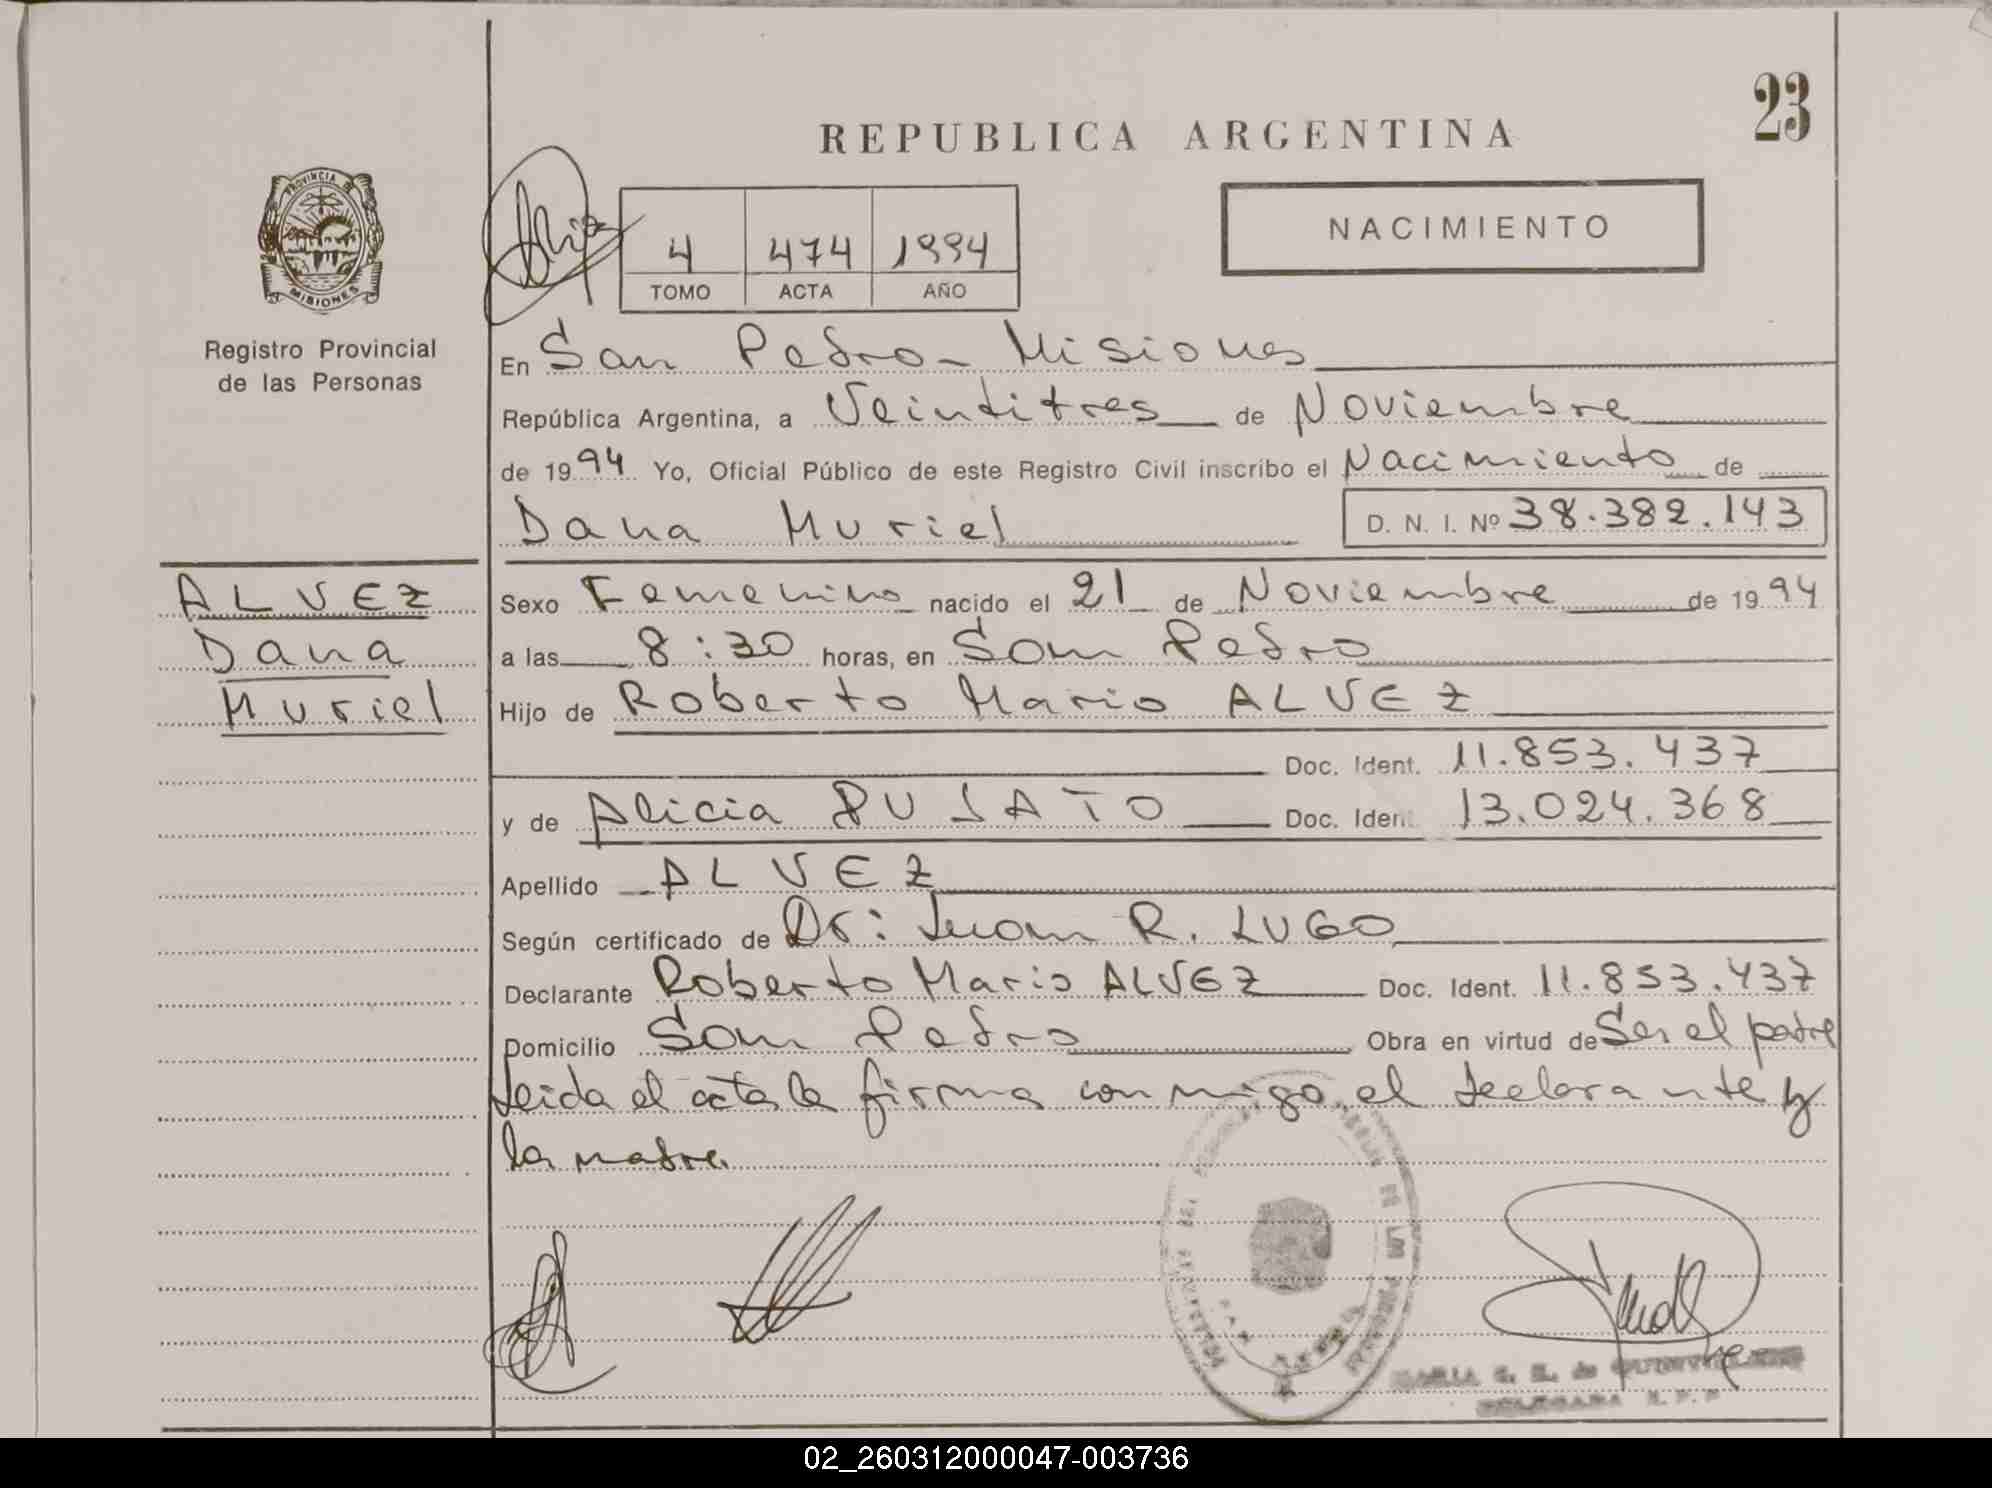 23
REPUBLICA ARGENTINA
NACIMIENTO
PROVINCIA DE
MISIONES
Registro Provincial
de las Personas
4 474 1994
TOMO ACTA AÑO
En San Pedro - Misiones
República Argentina, a Veintitres de Noviembre
de 1994 Yo, Oficial Público de este Registro Civil inscribo el Nacimiento de
Dana Muriel D. N. I. Nº 38.382.143
ALVEZ
Dana
Muriel
Sexo Femenino nacido el 21 de Noviembre de 1994
a las 8:30 horas, en San Pedro
Hijo de Roberto Mario ALVEZ
Doc. Ident. 11.853.437
y de Alicia Doc. Ident. 13.024.368
Apellido ALVEZ
Según certificado de Dr: Juan R. LUGO
Declarante Roberto Mario ALVEZ Doc. Ident. 11.853.437
Domicilio San Pedro Obra en virtud de Ser el padre
Leida el acta la firma conmigo el declarante y
la madre.
02_260312000047-003736